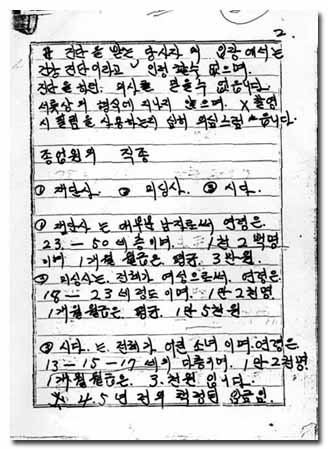 2.
단을 받는 당사자의 입장에서는
건강 진단이라고 인정 할수 없으며.
진단을 하던. 의사를 믿을수 없읍니다.
서류상의 형식에 지나지 않으며. X 촬영
시 필림을 사용하는지 심히 의심스럽습니다.
종업원의 직종
① 재단사. ② 미싱사. ③ 시다.
① 재단사는 대부분 남자로써, 연령은.
23 — 50세 층이며. 1천 2백명
이며 1개월 월급은. 평균. 3만원.
② 미싱사는. 전체가 여성으로써, 연령은.
18 — 23세 정도이며. 1만 2천명.
1개월 월급은. 평균. 1만 5천원
③ 시다.는. 전체가. 어린 소녀이며. 연령은.
13 — 15 — 17세의 층이며. 1만 2천명.
1개월 월급은. 3.천원 입니다.
4.5년 전의 책정된 임금임.